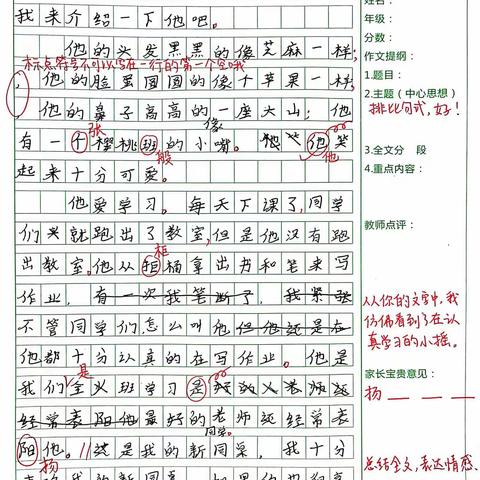 我来介绍一下他吧。
他的头发黑黑的像芝麻一样;
标点符号不可以写在一行的第一个空哦
,他的脸蛋圆圆的像个苹果一样
,他的鼻子高高的像一座大山;他
有一个张樱桃班般的小嘴。他笑他
起来十分可爱。
他爱学习。每天下课了,同学
们兴就跑出了教室,但是他没有跑
出教室。他从柜桶拿出书和笔来写
作业,有一次我笔断了,我紧张
不管同学们怎么叫他但他还是在
他都十分认真的在写作业。他是
我们是全义班学习是好的人老师还
经常表阳他最好的老师还经常表
同学。
阳他。//这是我的新同桌,我十分
扬
姓名:
年级:
分数:
作文提纲:
1.题目:
2.主题(中心思想)
排比句式,好!
3.全文分 段
4.重点内容:
教师点评:
从你的文字中,我
仿佛看到了在认
真学习的小摇。
家长宝贵意见:
扬
总结全文,表达情感.